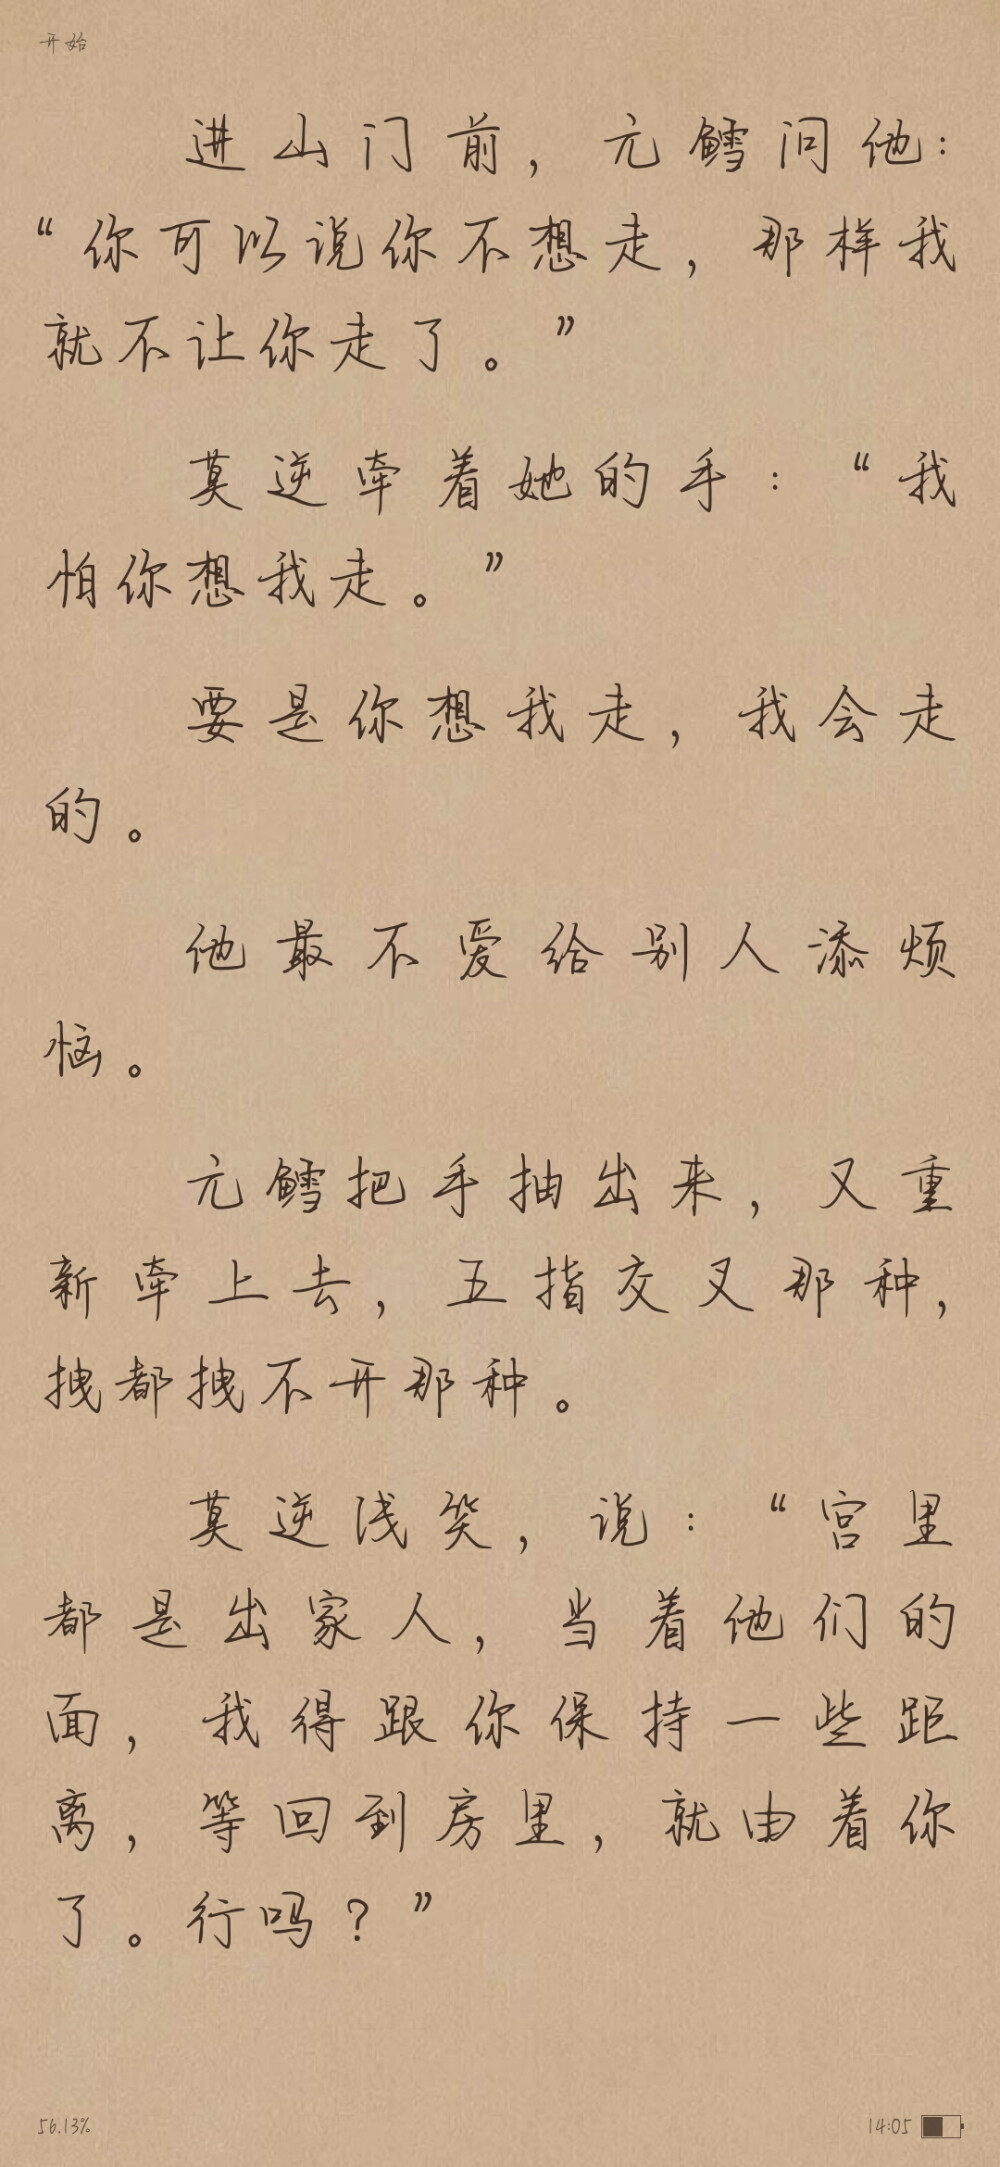 开始
进山门前，亓鳕问他：
“你可以说你不想走，那样我
就不让你走了。”
莫逆牵着她的手：“我
怕你想我走。”
要是你想我走，我会走
的。
他最不爱给别人添烦
恼。
亓鳕把手抽出来，又重
新牵上去，五指交叉那种，
拽都拽不开那种。
莫逆浅笑，说：“宫里
都是出家人，当着他们的
面，我得跟你保持一些距
离，等回到房里，就由着你
了。行吗？”
56.13%
14:05